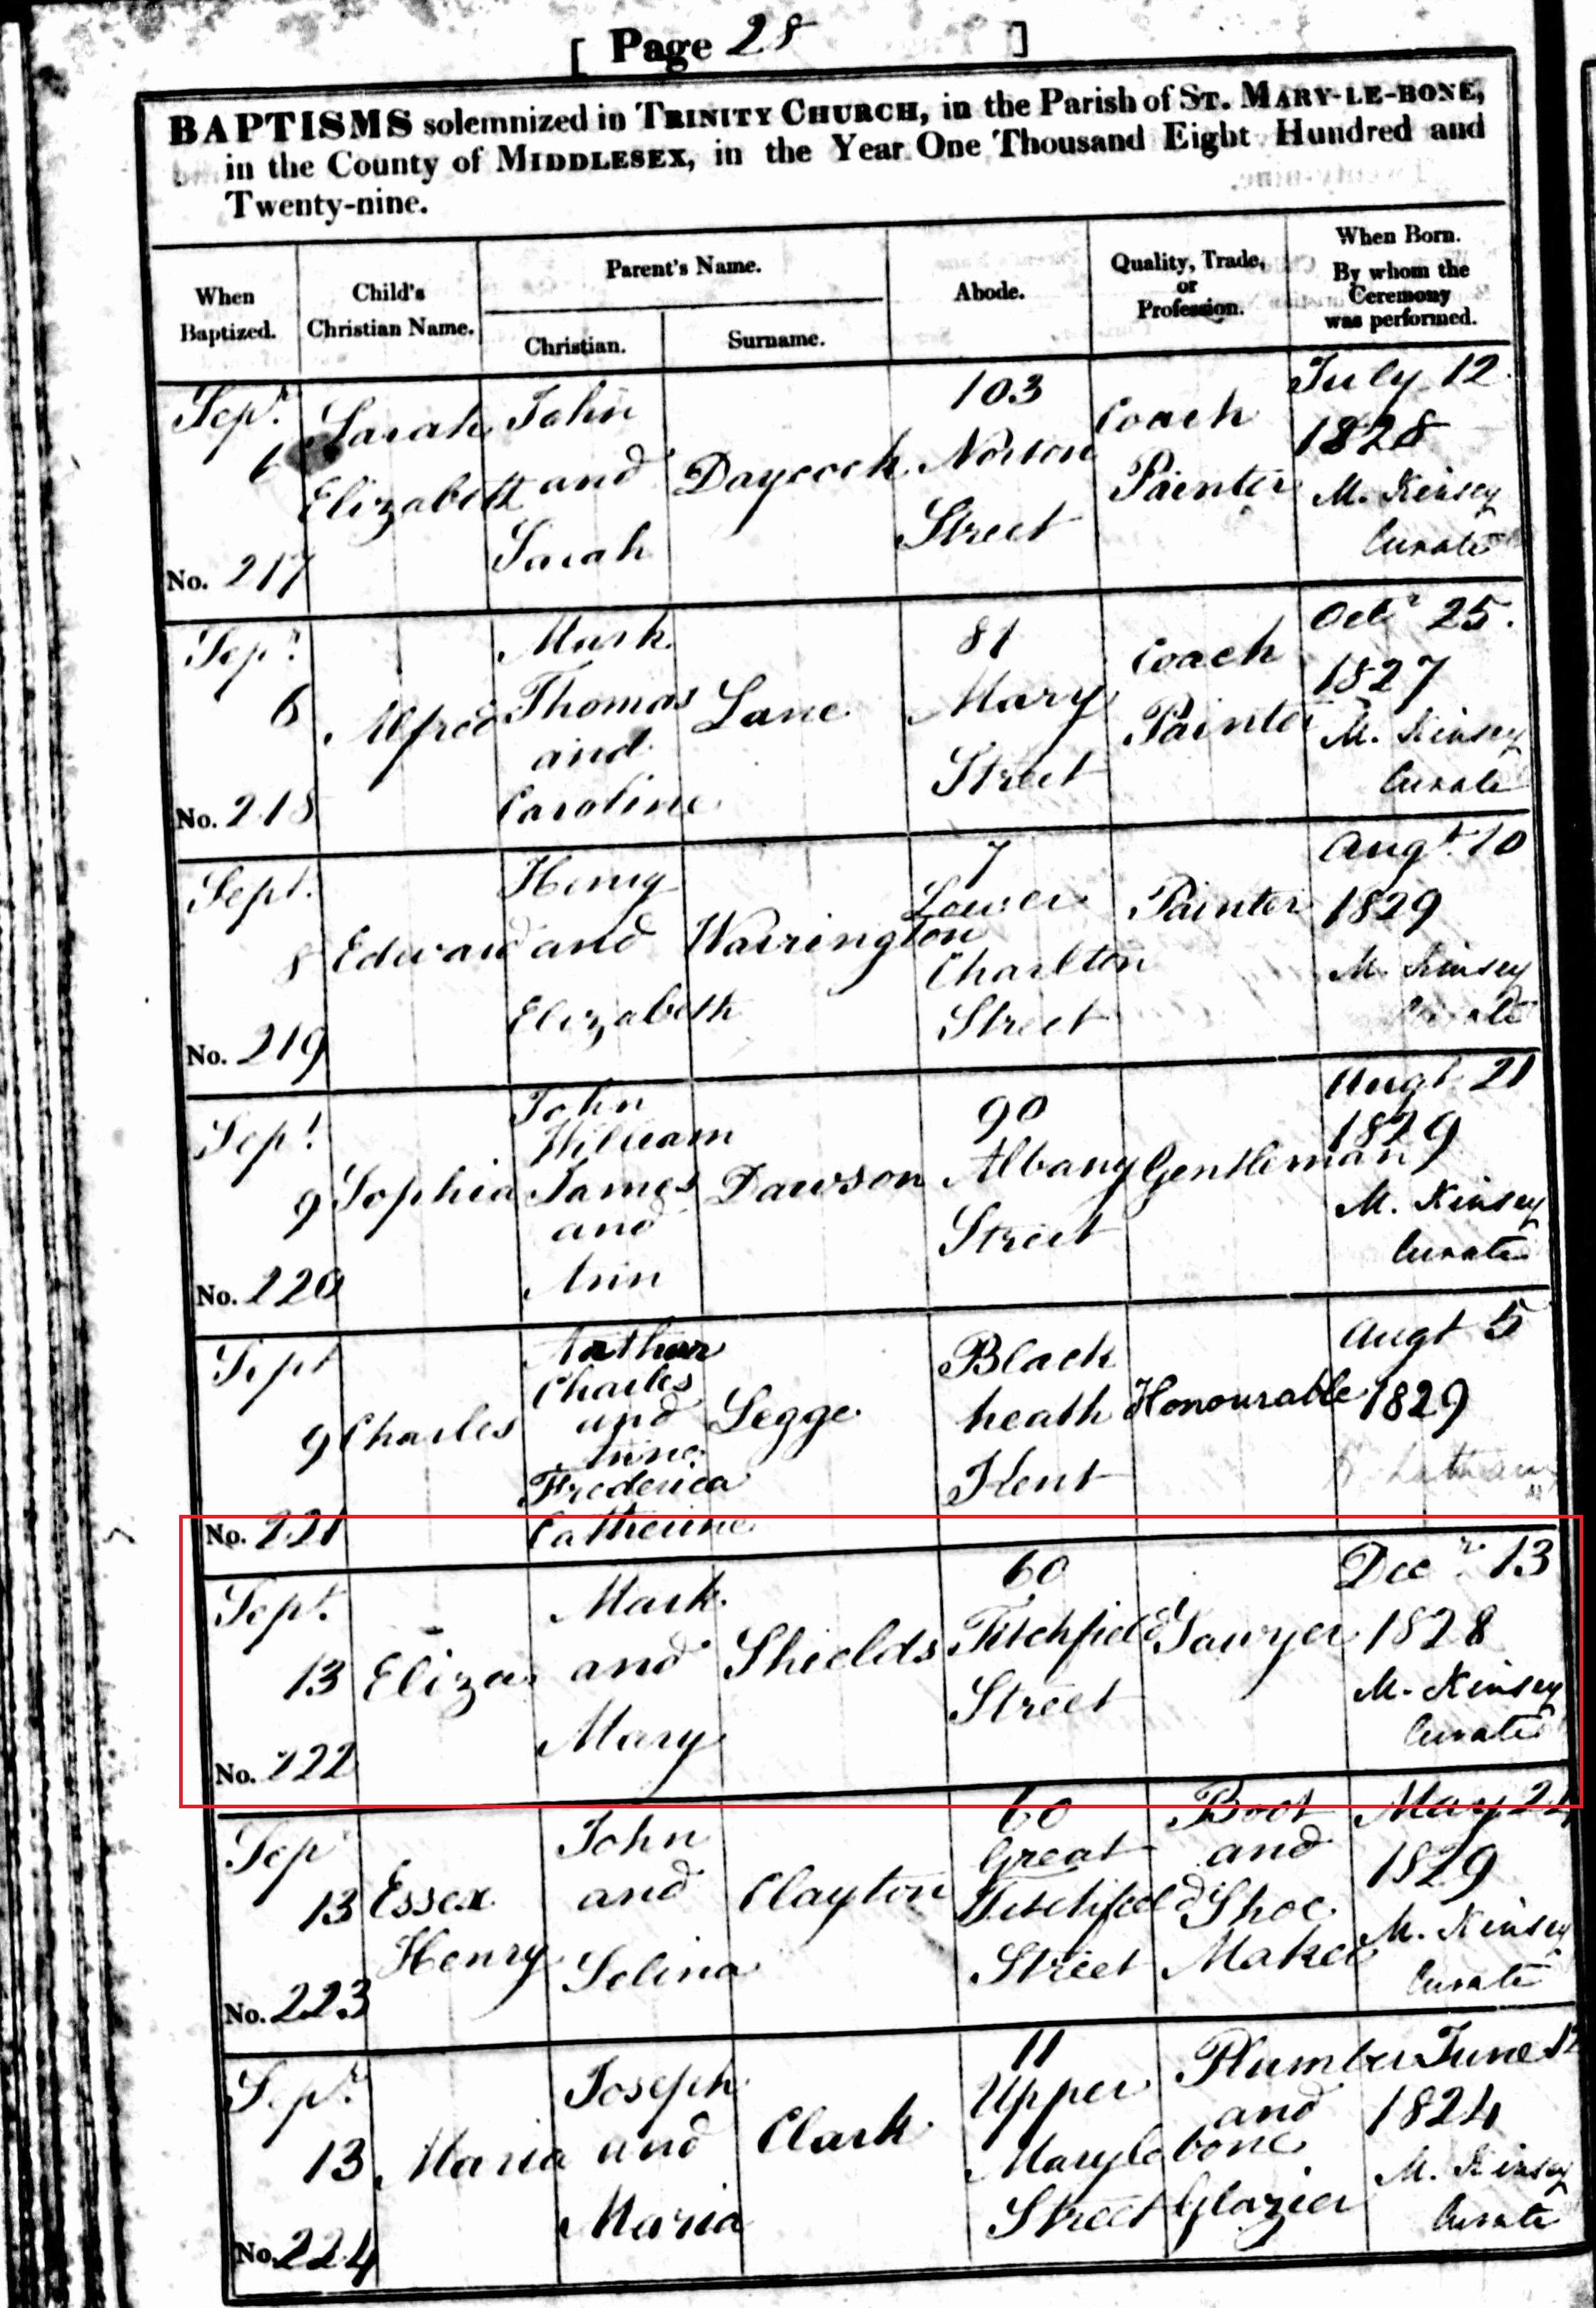 [ Page 28 ]
BAPTISMS solemnized in TRINITY CHURCH, in the Parish of ST. MARY-LE-BONE,
in the County of MIDDLESEX, in the Year One Thousand Eight Hundred and
Twenty-nine.
When
Baptized.
Child's
Christian Name.
Parent's Name.
Christian.
Surname.
Abode.
Quality, Trade,
or
Profession.
When Born.
By whom the
Ceremony
was performed.
Sepr.
6
No. 217
Sarah
Elizabeth
John
and
Sarah
Daycock
103
Norton
Street
Coach
Painter
July 12
1828
M. Kinsey
Curate
Sepr.
6
No. 218
Alfred
Mark
Thomas
and
Caroline
Lane
81
Mary
Street
Coach
Painter
Octr 25.
1827
M. Kinsey
Curate
Sept.
8
No. 219
Edward
Henry
and
Elizabeth
Warrington
7
Lower
Charlton
Street
Painter
Augt. 10
1829
M. Kinsey
Curate
Sept
9
No. 220
Sophia
John
William
James
and
Ann
Dawson
90
Albany
Street
Gentleman
Augt 21
1829
M. Kinsey
Curate
Sept
9
No. 221
Charles
Arthur
Charles
and
Anne
Frederica
Catherine
Legge
Black
heath
Kent
Honourable
Augt 5
1829
Sept.
13
No. 222
Eliza
Mark
and
Mary
Shields
60
Titchfield
Street
Sawyer
Decr. 13
1828
M. Kinsey
Curate
Sep
13
No. 223
Essex
Henry
John
and
Selina
Clayton
60
Great
Titchfield
Street
Boot
and
Shoe
Maker
May 24
1829
M. Kinsey
Curate
Sepr.
13
No. 224
Maria
Joseph
and
Maria
Clark
11
Upper
Maryle bone
Street
Plumber
and
Glazier
June 12
1824
M. Kinsey
Curate